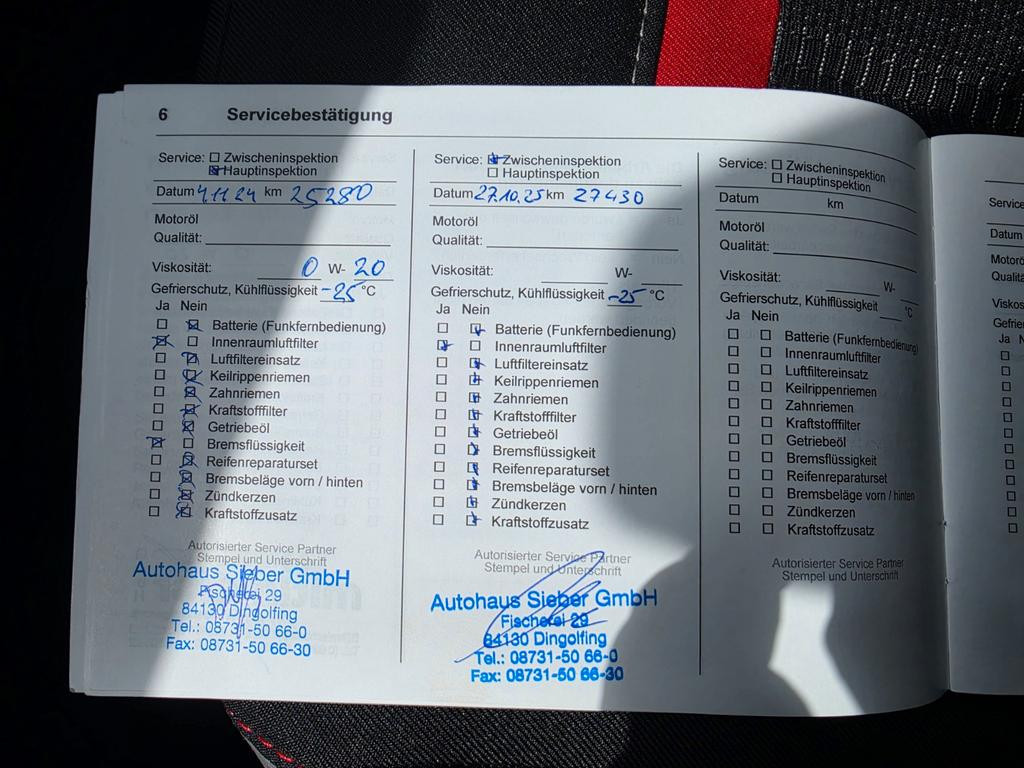 6 Servicebestätigung
Service: ☐ Zwischeninspektion
☒ Hauptinspektion
Datum 4.11.24 km 25280
Motoröl
Qualität:
Viskosität: 0 W- 20
Gefrierschutz, Kühlflüssigkeit -25 °C
Ja Nein
☐ ☒ Batterie (Funkfernbedienung)
☒ ☐ Innenraumluftfilter
☐ ☒ Luftfiltereinsatz
☐ ☒ Keilrippenriemen
☐ ☒ Zahnriemen
☐ ☒ Kraftstofffilter
☐ ☒ Getriebeöl
☒ ☐ Bremsflüssigkeit
☐ ☒ Reifenreparaturset
☐ ☒ Bremsbeläge vorn / hinten
☐ ☒ Zündkerzen
☐ ☒ Kraftstoffzusatz
Autorisierter Service Partner
Stempel und Unterschrift
Autohaus Sieber GmbH
Fischerei 29
84130 Dingolfing
Tel.: 08731-50 66-0
Fax: 08731-50 66-30
Service: ☒ Zwischeninspektion
☐ Hauptinspektion
Datum 27.10.25 km 27430
Motoröl
Qualität:
Viskosität: W-
Gefrierschutz, Kühlflüssigkeit -25 °C
Ja Nein
☐ ☒ Batterie (Funkfernbedienung)
☒ ☐ Innenraumluftfilter
☐ ☒ Luftfiltereinsatz
☐ ☒ Keilrippenriemen
☐ ☒ Zahnriemen
☐ ☒ Kraftstofffilter
☐ ☒ Getriebeöl
☐ ☒ Bremsflüssigkeit
☐ ☒ Reifenreparaturset
☐ ☒ Bremsbeläge vorn / hinten
☐ ☒ Zündkerzen
☐ ☒ Kraftstoffzusatz
Autorisierter Service Partner
Stempel und Unterschrift
Autohaus Sieber GmbH
Fischerei 29
84130 Dingolfing
Tel.: 08731-50 66-0
Fax: 08731-50 66-30
Service: ☐ Zwischeninspektion
☐ Hauptinspektion
Datum km
Motoröl
Qualität:
Viskosität: W-
Gefrierschutz, Kühlflüssigkeit °C
Ja Nein
☐ ☐ Batterie (Funkfernbedienung)
☐ ☐ Innenraumluftfilter
☐ ☐ Luftfiltereinsatz
☐ ☐ Keilrippenriemen
☐ ☐ Zahnriemen
☐ ☐ Kraftstofffilter
☐ ☐ Getriebeöl
☐ ☐ Bremsflüssigkeit
☐ ☐ Reifenreparaturset
☐ ☐ Bremsbeläge vorn / hinten
☐ ☐ Zündkerzen
☐ ☐ Kraftstoffzusatz
Autorisierter Service Partner
Stempel und Unterschrift
Service
Datum
Ja